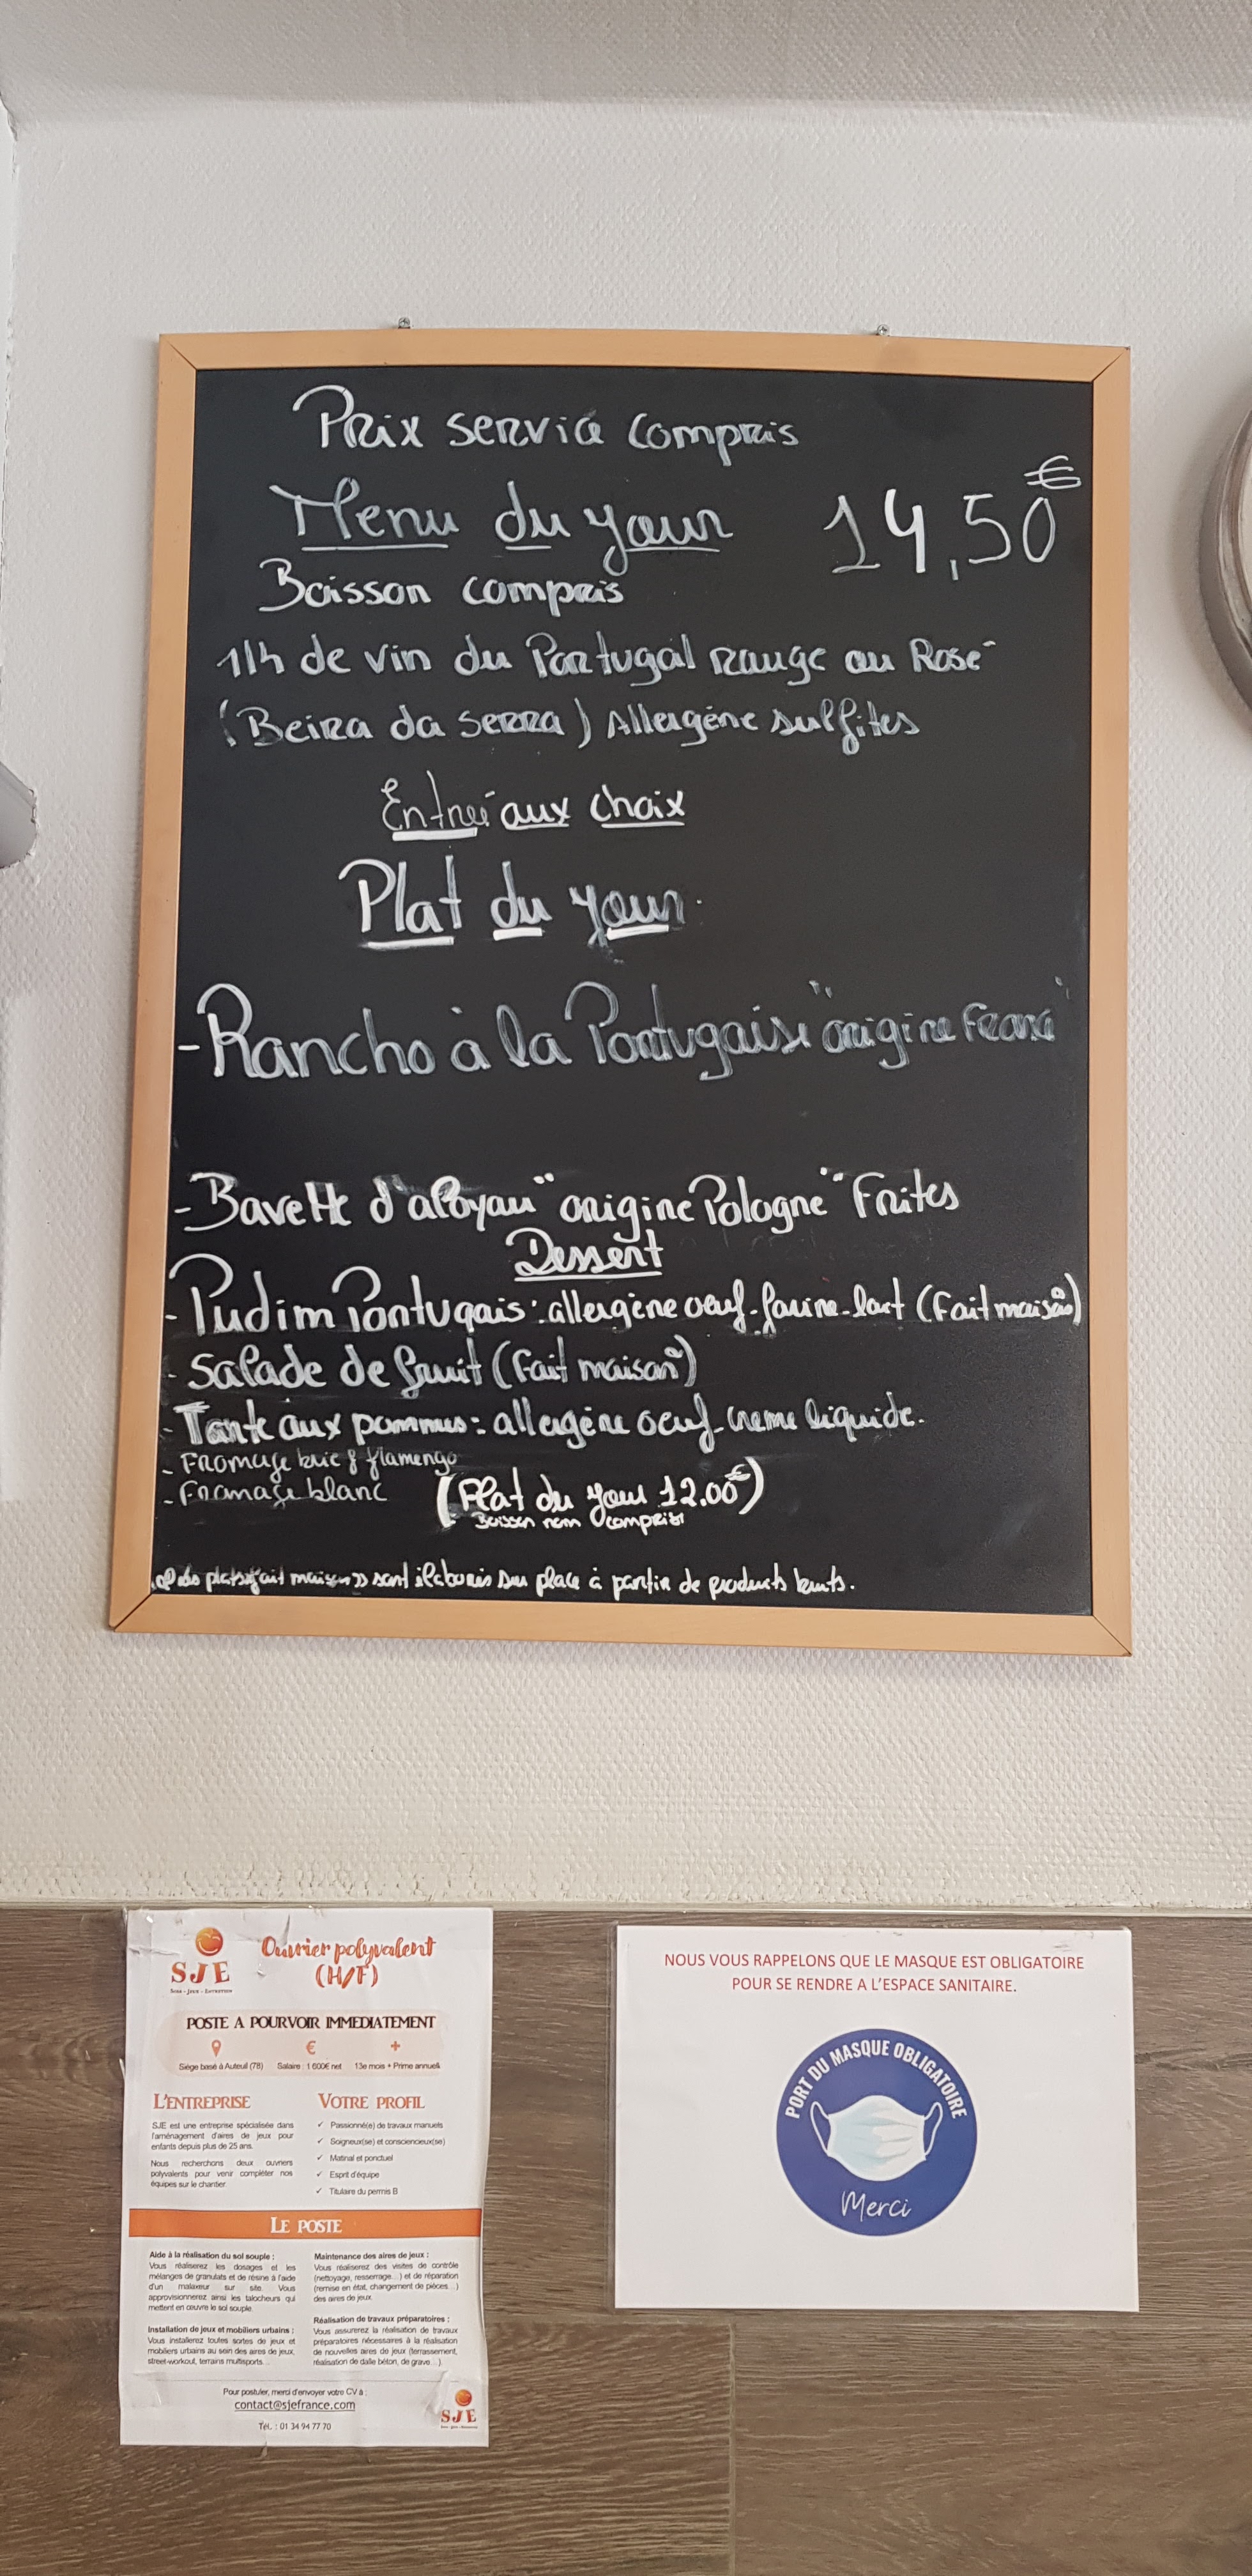 Prix service compris
Menu du your 14,50€
Boisson compris
1/4 de vin du Portugal rouge ou Rosé
(Beira da serra) Allergéne sulfites
Entreé aux choix
Plat du your
- Rancho à la Portugaise "origine France"
- Bavette d'aloyau "origine Pologne" Frites
Dessert
- Pudim Portugais : allergène oeuf-farine-lait (Fait maison)
- Salade de fruit (Fait maison)
- Tarte aux pommes : allergène oeuf-creme liquide.
- Fromage brie & flamengo
- Fromage blanc
(Plat du your 12.00€)
Boisson non comprise
plats fait maison » sont élaborés sur place à partir de products bruts.
SJE
Ouvrier polyvalent
(H/F)
POSTE A POURVOIR IMMEDIATEMENT
€ +
Siège basé à Auteuil (78) Salaire : 1 600€ net 13e mois + Prime annuelle
L'ENTREPRISE
SJE est une entreprise spécialisée dans
l'aménagement d'aires de jeux pour
enfants depuis plus de 25 ans.
Nous recherchons deux ouvriers
polyvalents pour venir compléter nos
équipes sur le chantier.
VOTRE PROFIL
✓ Passionné(e) de travaux manuels
✓ Soigneux(se) et consciencieux(se)
✓ Matinal et ponctuel
✓ Esprit d'équipe
✓ Titulaire du permis B
LE POSTE
Aide à la réalisation du sol souple :
Vous réaliserez les dosages et les
mélanges de granulats et de résine à l'aide
d'un malaxeur sur site. Vous
approvisionnerez ainsi les talocheurs qui
mettent en œuvre le sol souple.
Installation de jeux et mobiliers urbains :
Vous installerez toutes sortes de jeux et
mobiliers urbains au sein des aires de jeux,
street-workout, terrains multisports...
Maintenance des aires de jeux :
Vous réaliserez des visites de contrôle
(nettoyage, resserrage...) et de réparation
(remise en état, changement de pièces...)
des aires de jeux.
Réalisation de travaux préparatoires :
Vous assurerez la réalisation de travaux
préparatoires nécessaires à la réalisation
de nouvelles aires de jeux (terrassement,
réalisation de dalle béton, de grave...).
Pour postuler, merci d'envoyer votre CV à :
contact@sjefrance.com
Tél. : 01 34 94 77 70
SJE
NOUS VOUS RAPPELONS QUE LE MASQUE EST OBLIGATOIRE
POUR SE RENDRE A L'ESPACE SANITAIRE.
PORT DU MASQUE OBLIGATOIRE
Merci